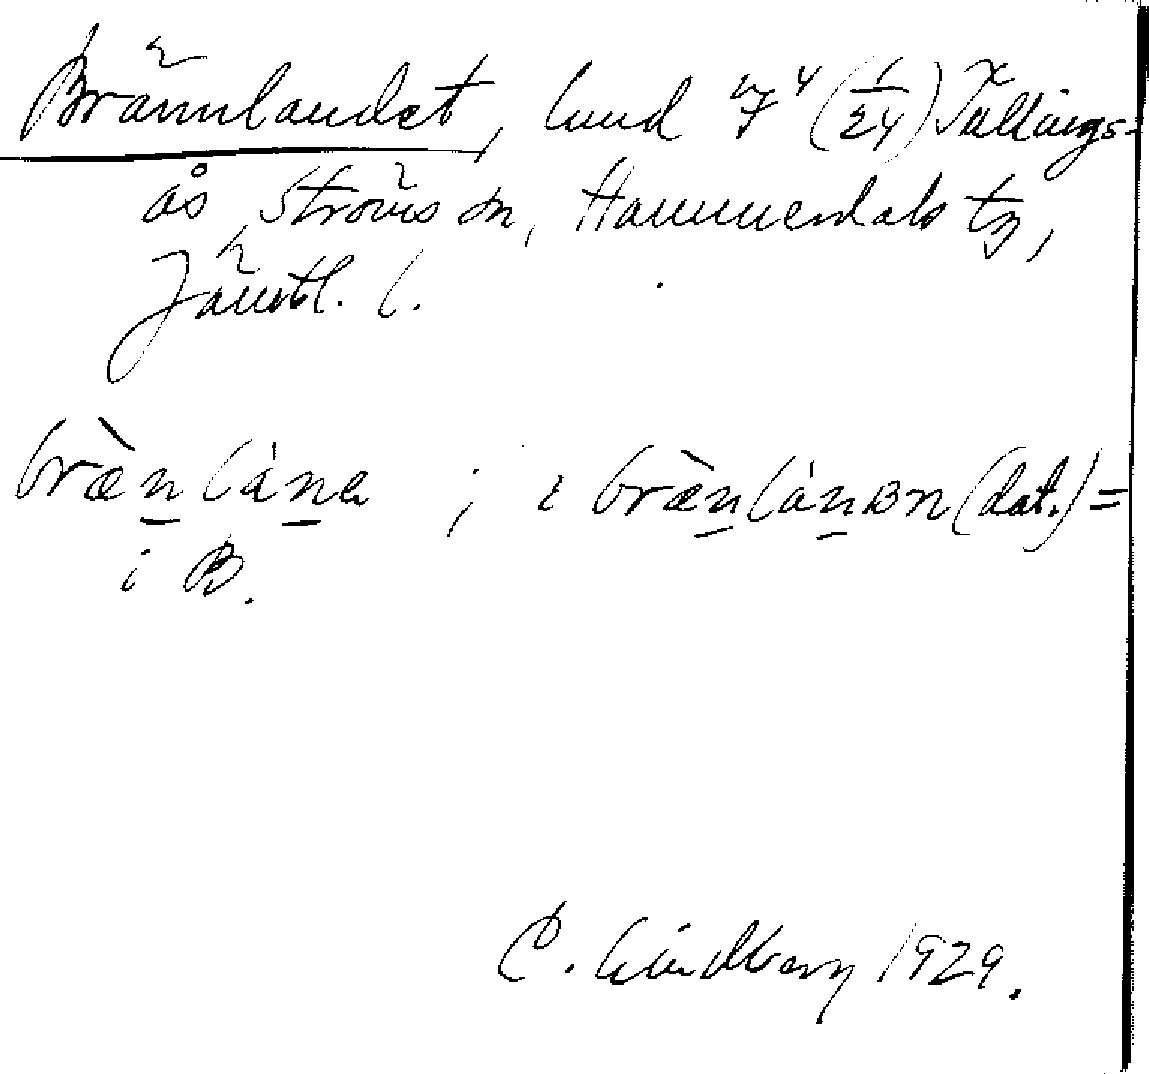 Brännlandet, lmd 7⁴ (1/24) Tullings-
ås, Ströms sn, Hammerdals tg,
Jämtl. l.
bræ̀n lána ; i bræ̀n lánʙn (dat.) =
i B.
C. Lindberg 1929.